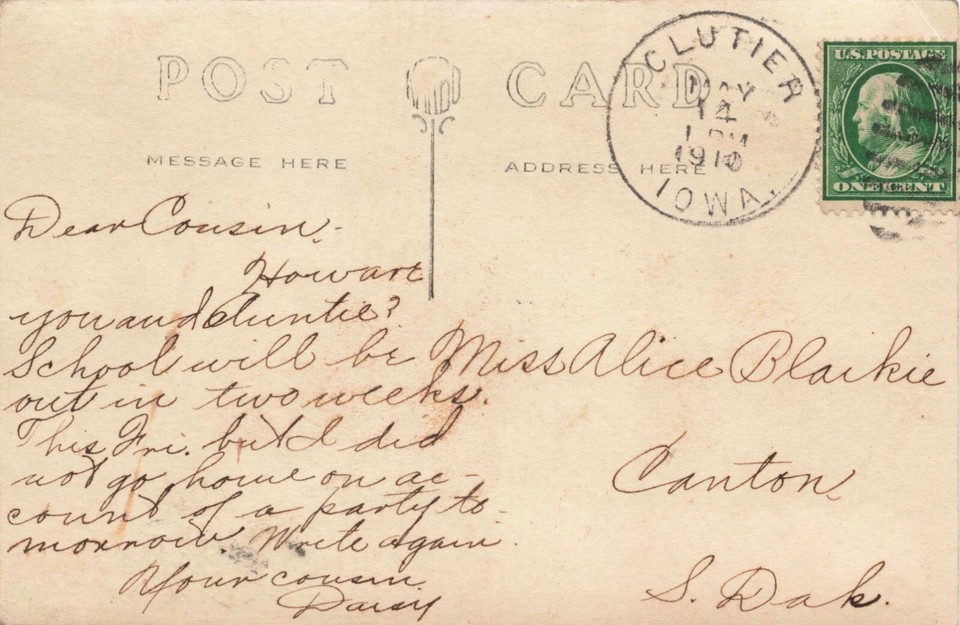 POST CARD
MESSAGE HERE
ADDRESS HERE
CLUTIER
MAY
14
1 PM
1910
IOWA.
U.S. POSTAGE
ONE CENT
Dear Cousin.
How are
you and Auntie?
School will be
out in two weeks.
This Fri. but I did
not go home on ac-
count of a party to-
morrow Write again.
Your cousin
Daisy
Miss Alice Blaikie
Canton
S. Dak.